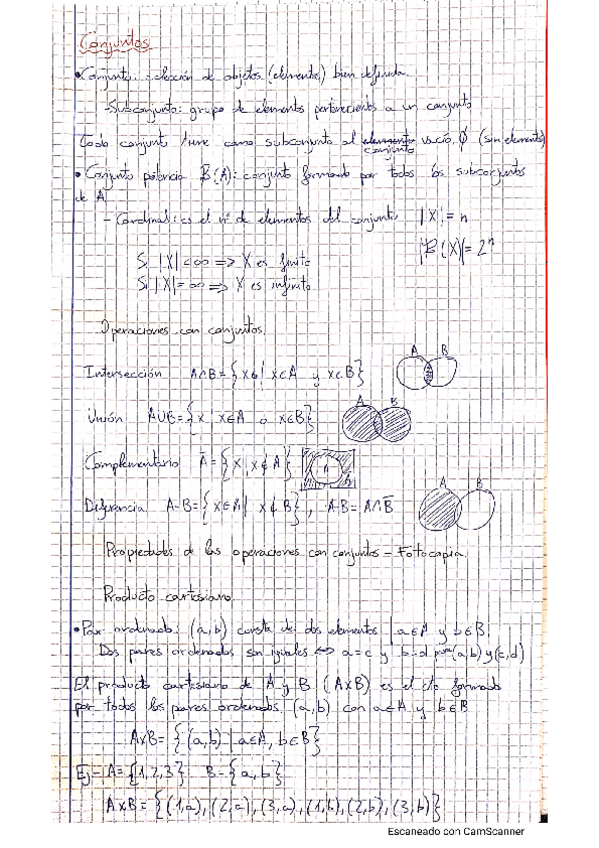 Conjuntos
• Conjunto: colección de objetos (elementos) bien definida.
- Subconjunto: grupo de elementos pertenecientes a un conjunto
Todo conjunto tiene como subconjunto al elemento conjunto vacío, ∅ (sin elementos)
• Conjunto potencia B(A): conjunto formado por todos los subconjuntos
de A
- Cardinal: es el nº de elementos del conjunto |X| = n
|B(X)| = 2ⁿ
Si |X| < ∞ => X es finito
Si |X| = ∞ => X es infinito
Operaciones con conjuntos.
Intersección A∩B = { x | x∈A y x∈B} A B
Unión A∪B = {x | x∈A o x∈B} A B
Complementario Ā = {x | x∉A} A
Diferencia A-B = {x∈A | x∉B}, A-B = A∩B̄ A B
Propiedades de las operaciones con conjuntos - Fotocopia.
Producto cartesiano
• Par ordenado: (a,b) consta de dos elementos | a∈A y b∈B.
Dos pares ordenados son iguales <=> a=c y b=d para (a,b) y (c,d)
El producto cartesiano de A y B (AxB) es el cto formado
por todos los pares ordenados (a,b) con a∈A y b∈B
AxB = {(a,b) | a∈A, b∈B}
Ej - A = {1,2,3} B = {a,b}
AxB = {(1,a), (2,a), (3,a), (1,b), (2,b), (3,b)}
Escaneado con CamScanner